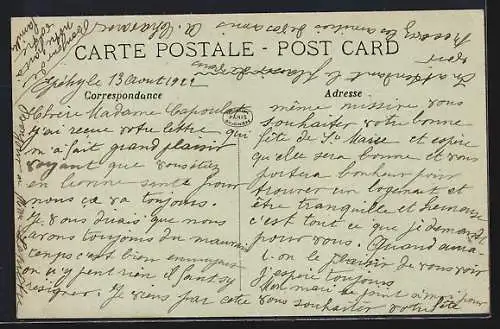 CARTE POSTALE - POST CARD
13 Août 1922
Correspondance
Adresse
PARIS
Chère Madame Capoulat
j'ai reçue votre lettre qui
m'a fait grand plaisir
voyant que vous étiez
en bonne santé pour
nous ça va toujours.
Je vous dirais que nous
avons toujours du mauvais
temps c'est bien ennuyeux
on n'y peut rien il faut s'y
résigner. Je viens par cette
même missive vous
souhaiter votre bonne
fête de Ste Marie et espère
qu'elle sera bonne et vous
portera bonheur pour
trouver un logement et
être tranquille et heureuse
c'est tout ce que je demande
pour vous. Quand aura
t-on le plaisir de vous voir
j'espère toujours
Mon mari se joint à moi pour
vous souhaiter votre fête
En attendant le plaisir
Recevez les amitiés de vos amis